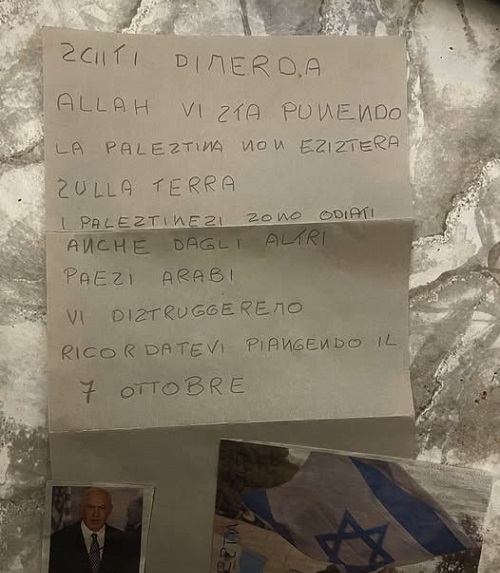 ZCIITI DIMERDA
ALLAH VI ZTA PUNENDO
LA PALEZTINA NON EZIZTERA
ZULLA TERRA
I PALEZTINEZI ZONO ODIATI
ANCHE DAGLI ALTRI
PAEZI ARABI
VI DIZTRUGGEREMO
RICORDATEVI PIANGENDO IL
7 OTTOBRE